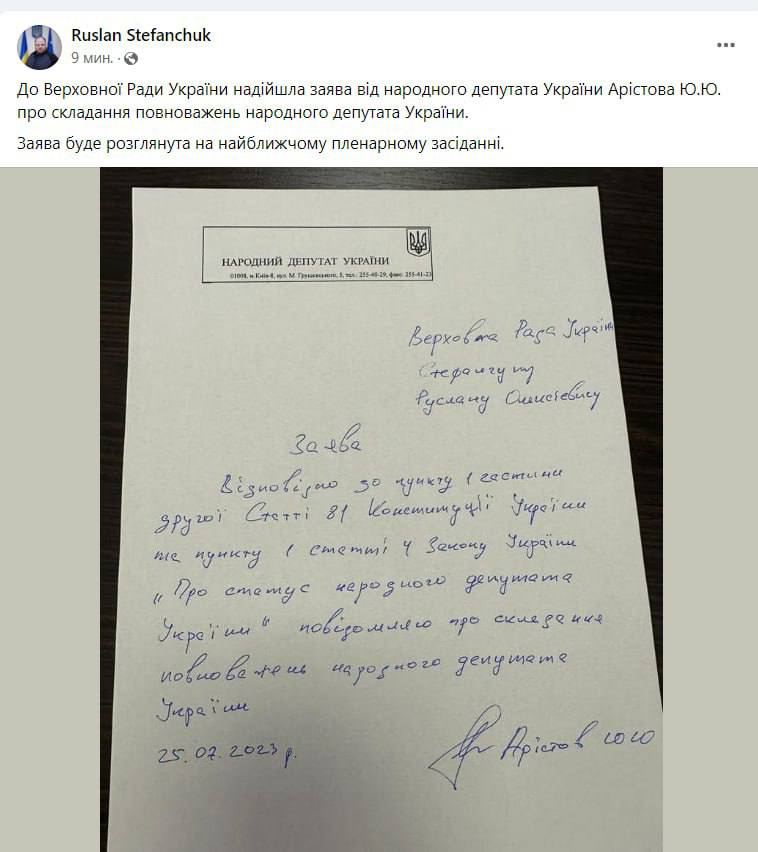 Ruslan Stefanchuk
9 мин. ·
До Верховної Ради України надійшла заява від народного депутата України Арістова Ю.Ю.
про складання повноважень народного депутата України.
Заява буде розглянута на найближчому пленарному засіданні.
НАРОДНИЙ ДЕПУТАТ УКРАЇНИ
01008, м.Київ-8, вул. М. Грушевського, 5, тел.: 255-40-29, факс: 255-41-23
Верховна Рада України
Стефанчуку
Руслану Олексієвичу
Заява
Відповідно до пункту 1 частини
другої Статті 81 Конституції України
та пункту 1 статті 4 Закону України
„Про статус народного депутата
України" повідомляю про складання
повноважень народного депутата
України
25.07.2023 р.
Арістов ЮЮ